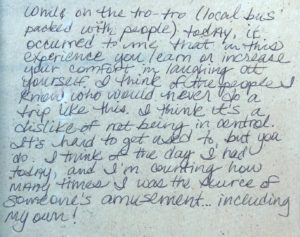 While on the tro-tro (local bus
packed with people) today, it
occurred to me that in this
experience you learn or increase
your comfort in laughing at
yourself. I think of the people I
know who would never do a
trip like this. I think it's a
dislike of not being in control.
It's hard to get used to, but you
do. I think of the day I had
today, and I'm counting how
many times I was the source of
someone's amusement... including
my own!